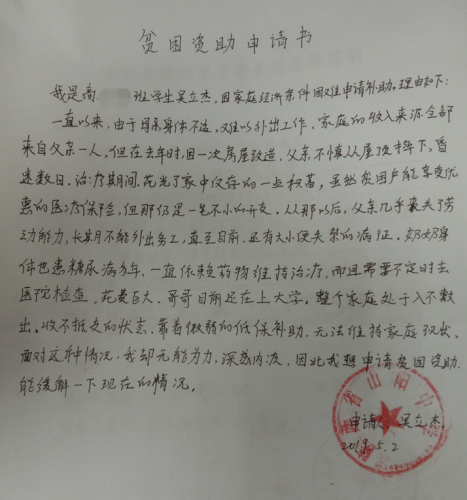 贫困资助申请书
我是高 班学生吴立杰,因家庭经济条件困难申请补助。理由如下:
一直以来,由于母亲身体不适,难以外出工作,家庭的收入来源全部
来自父亲一人,但在去年时,因一次房屋改造,父亲不慎从屋顶摔下,昏
迷数日。治疗期间,花光了家中仅存的一点积蓄,虽然贫困户能享受优
惠的医疗保险,但那仍是一笔不小的开支。从那以后,父亲几乎丧失了劳
动能力,长期不能外出务工,直至目前,还有大小便失禁的病症。奶奶身
体也患糖尿病多年,一直依赖药物维持治疗,而且需要不定时去
医院检查,花费巨大。哥哥目前还在上大学。整个家庭处于入不敷
出、收不抵支的状态,靠着微弱的低保补助,无法维持家庭现状。
面对这种情况,我却无能为力,深感内疚,因此我想申请贫困资助,
能缓解一下现在的情况。
申请人:吴立杰
2019.5.2
省山阳中学